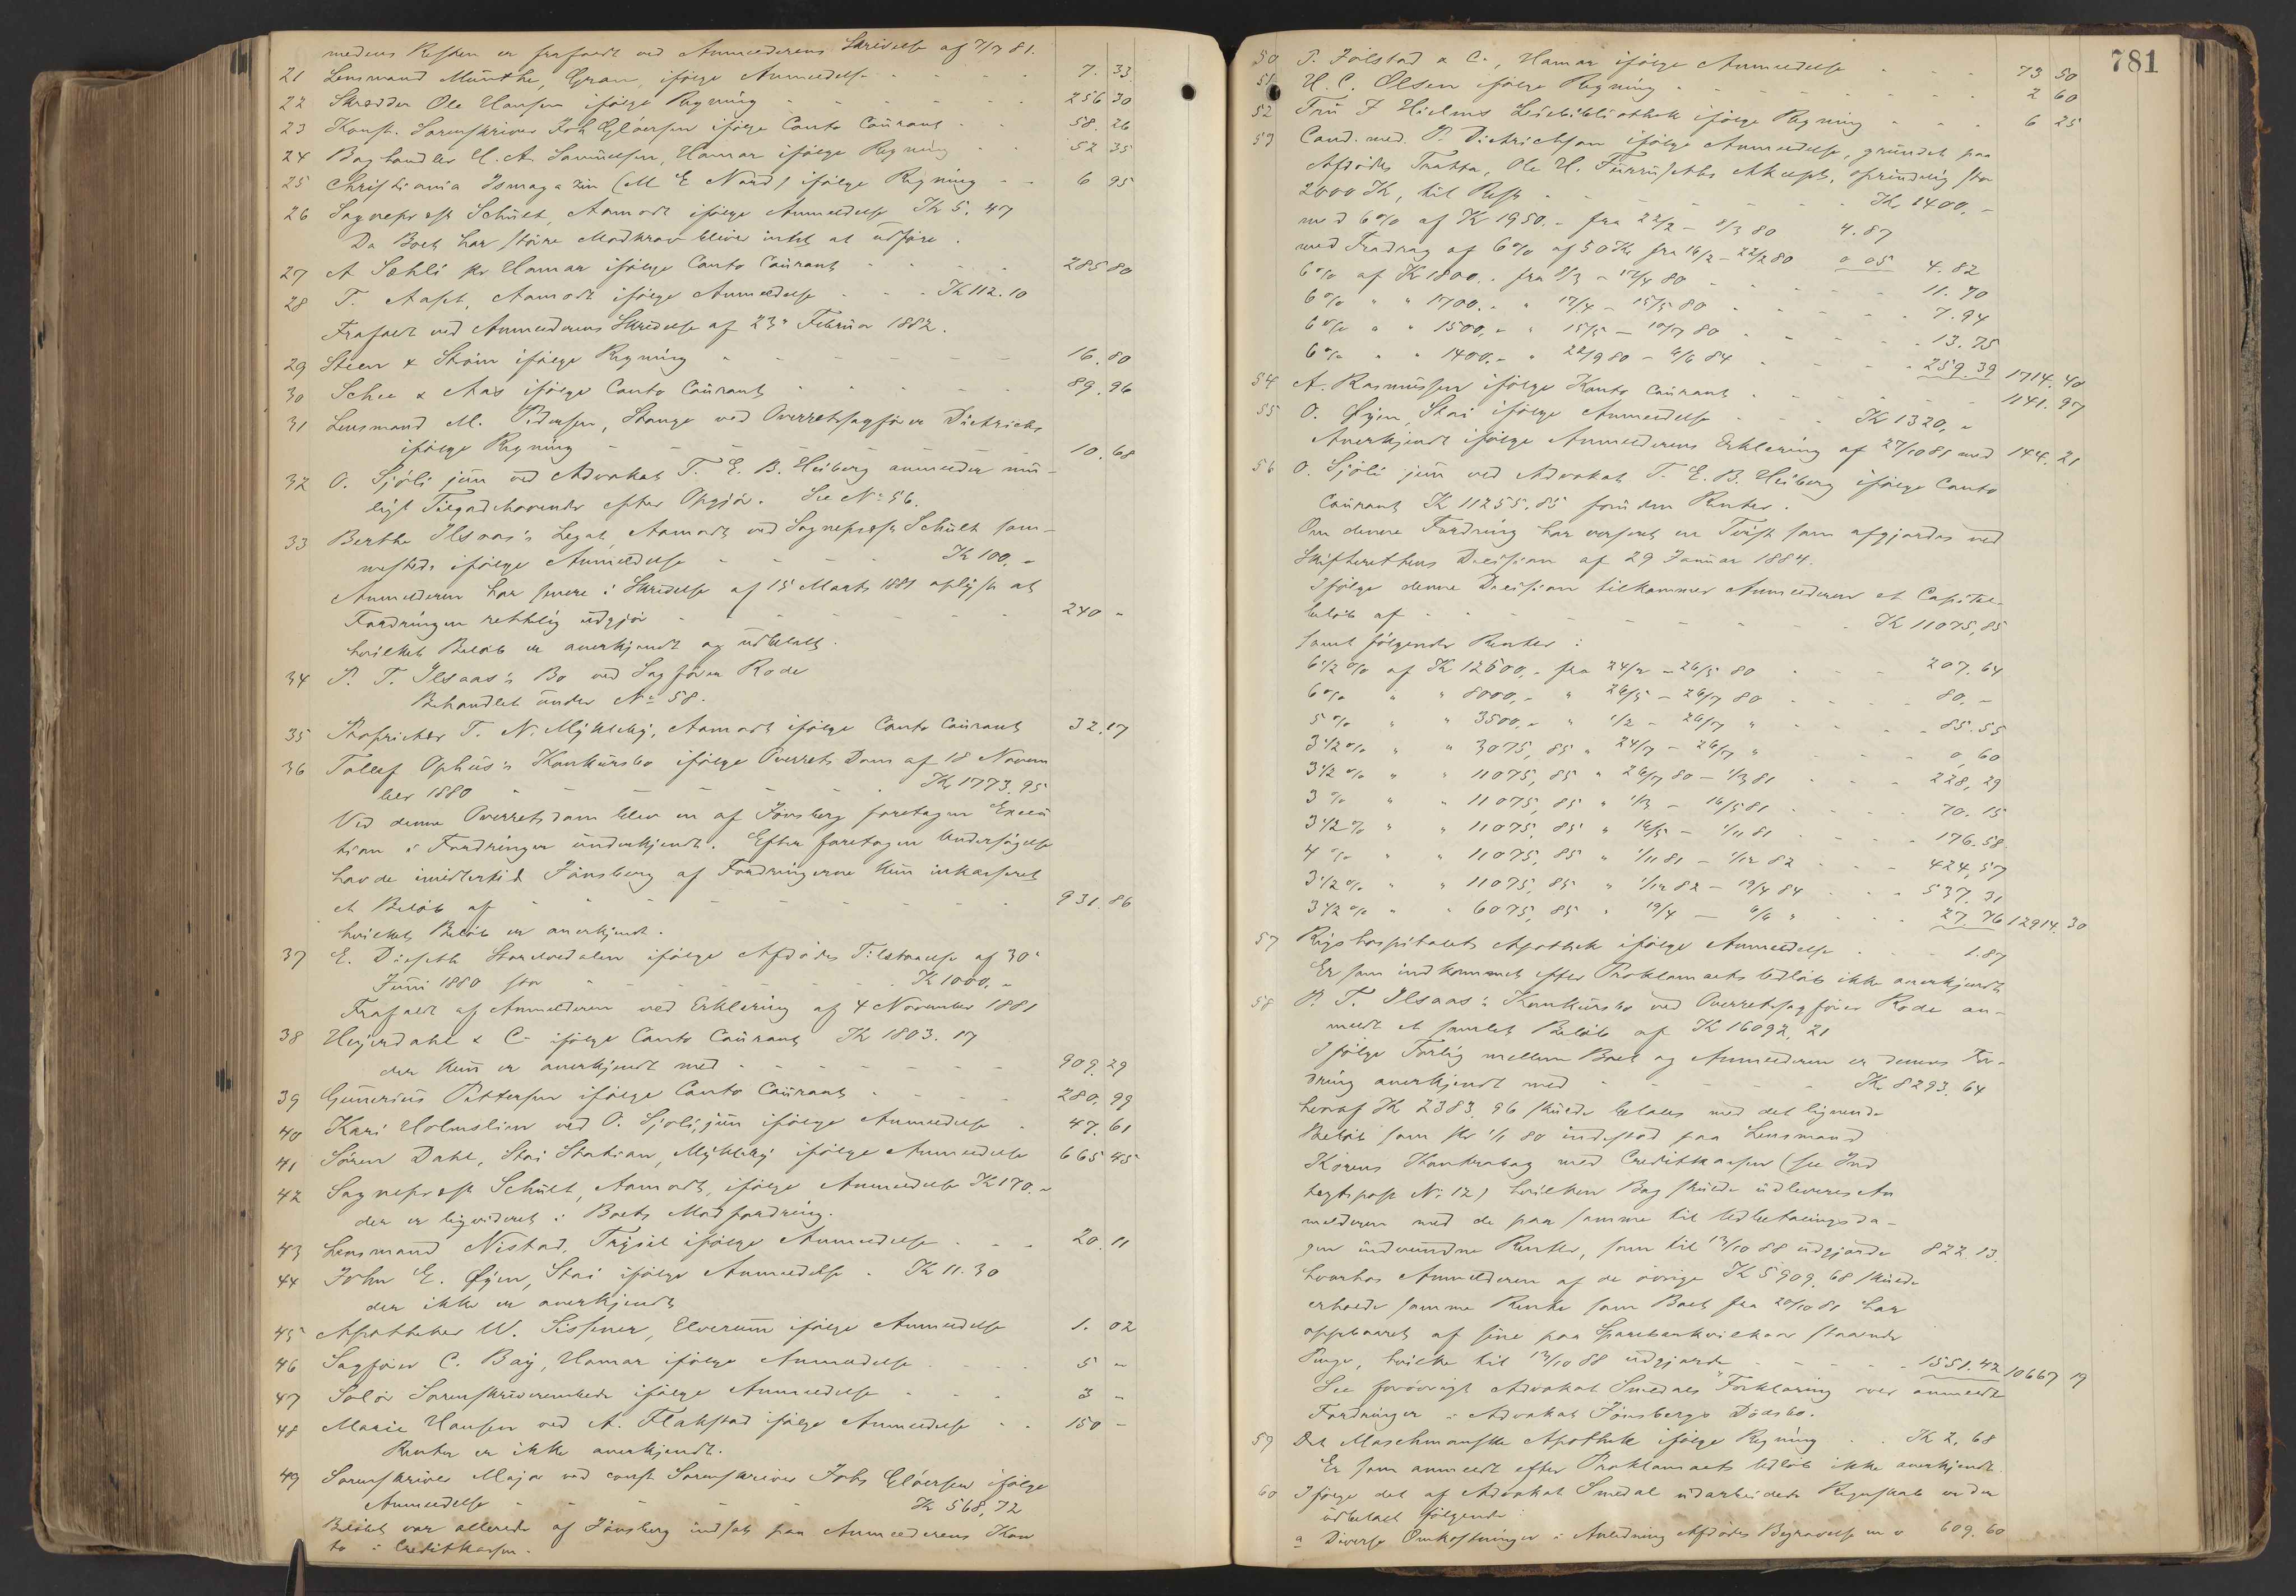 medens Resten er frafaldt ved Anmelderens Skrivelse af 7/7 81.
21 Lensmand Münthe, Gran, ifölge Anmeldelse - - - - 7. 33
22 Skrædder Ole Hansen ifölge Regning - - - - 256 30
23 Konst. Sorenskriver Joh Glöersen ifölge Conto Courant - - 58. 26
24 Boghandler H. A. Samuelsen, Hamar ifölge Regning - - 52 35
25 Christiania Ismagazin (M E Nord) ifölge Regning - - 6 95
26 Sogneprest Schült, Aamodt ifölge Anmeldelse Kr 5. 47
Da Boet har större Modkrav bliver intet at udföre.
27 A Sæhli pr Hamar ifölge Conto Courant - - - 285 80
28 T. Aaset, Aamodt ifölge Anmeldelse - - - Kr 112. 10
Frafaldt ved Anmelderens Skrivelse af 23de Februar 1882.
29 Steen & Ström ifölge Regning - - - - 16. 80
30 Schee & Aas ifölge Conto Courant - - - - 89. 96
31 Lensmand M. Pedersen, Stange ved Overretssagförer Dietrichs
ifölge Regning - - - - 10. 68
32 O. Sjöli jun ved Advokat T. E. B. Heiberg anmelder mu-
ligt Tilgodehavende efter Opgjör. See No 56.
33 Berthe Ilsaas's Legat, Aamodt ved Sogneprest Schült sam-
mesteds ifölge Anmeldelse - - - - Kr 100. -
Anmelderen har senere i Skrivelse af 15 Marts 1881 oplyst at
Fordringen rettelig udgjör - - - - 240 -
hvilket Belöb er anerkjendt og udbetalt.
34 P. T. Ilsaas's Bo ved Sagförer Rode
Behandlet under No 58.
35 T. N. Myklebÿ, Aamodt ifölge Conto Courant 32. 17
36 Tollef Ophus's Konkursbo ifölge Overrets Dom af 18 Novem
ber 1880 - - - - Kr 1773. 95
Ved denne Overretsdom blev en af Jönsberg foretagen Execu
tion i Fordringer underkjendt. Efter foretagen Undersögelse
havde imidlertid Jönsberg af Fordringerne kun inkasseret
et Belöb af - - - - 931. 86
hvilket Belöb er anerkjendt.
37 E. Storelvedalen ifölge Afdödes Tilstaaelse af 30te
Juni 1880 stor - - - - Kr 1000. -
Frafaldt af Anmelderen ved Erklæring af 4 November 1881
38 Heyerdahl & C ifölge Conto Courant Kr 1803. 17
der kun er anerkjendt med - - - - 909. 29
39 Gunerius Pettersen ifölge Conto Courant - - - 280. 99
40 Kari Holmslien ved O. Sjoli jun ifölge Anmeldelse - 47. 61
41 Sören Dahl, Stai Station, Myklebÿ ifölge Anmeldelse 665 45
42 Sogneprest Schült, Aamodt, ifölge Anmeldelse Kr 170. -
der er ligvideret i Boets Modfordring.
43 Lensmand Nistad, Trysil ifölge Anmeldelse - - - 20. 11
44 John E. Öÿen, Stai ifölge Anmeldelse - Kr 11. 30
der ikke er anerkjendt
45 Apotheker W. Sissener, Elverum ifölge Anmeldelse 1. 02
46 Sagförer C. Bay, Hamar ifölge Anmeldelse - - - 5 -
47 Solör Sorenskriverembede ifölge Anmeldelse - - - 3 -
48 Marie Hansen ved A. Flakstad ifölge Anmeldelse - - 150 -
Renter er ikke anerkjendt.
49 Sorenskriver Major ved const Sorenskriver Johs Glöersen ifölge
Anmeldelse - - - - Kr 568, 72
Belöbet var allerede af Jönsberg indsat paa Anmelderens Kon
to i Creditkassen.
781
50 P. Jölstad & C., Hamar ifölge Anmeldelse - - - 73 50
51 H. C. Olsen ifölge Regning - - - - 2 60
52 Fru J Hielms Leiebibliothek ifölge Regning - - - 6 25
53 Cand. med. P. Dietrichson ifölge Anmeldelse, grundet paa
Afdödes Tratta, Ole H. Furusethts Akcept, oprindelig stor
2000 Kr, til Rest - - - - Kr 1400. -
med 6% af Kr 1950. - fra 22/2 - 8/3 80 4. 87
med Fradrag af 6% af 50 Kr fra 16/2 - 22/2 80 0 05 4. 82
6% af Kr 1800. - fra 8/3 - 17/4 80 - - - - 11. 70
6% " " 1700. - " 17/4 - 15/5 80 - - - - 7. 94
6% " " 1500, - " 15/5 - 10/7 80 - - - - 13. 75
6% " " 1400. - " 22/9 80 - 6/6 84 - - - 259. 39 1714. 40
54 A. Rasmussen ifölge Konto Courant - - - - 1141. 97
55 O. Öÿen, Stai ifölge Anmeldelse - - - Kr 1320, -
Anerkjendt ifölge Anmelderens Erklæring af 27/10 81 med 144. 21
56 O. Sjöli jun ved Advokat T. E. B. Heiberg ifölge Conto
Courant Kr 11255. 85 foruden Renter.
Om denne Fordring har verseret en Tvist som afgjordes ved
Skifterettens Decision af 29 Januar 1884.
Ifölge denne Decision tilkommer Anmelderen et Capital-
belöb af - - - - Kr 11075, 85
samt fölgende Renter :
6 1/2 % af Kr 12600, - fra 24/2 - 26/5 80 - - 207. 64
6 % " " 8000, - " 26/5 - 26/7 80 - - - 80. -
5 % " " 3500, - " 1/2 - 26/7 " - - - 85. 55
3 1/2 % " " 3075, 85 " 24/7 - 26/7 " - - 0, 60
3 1/2 % " " 11075, 85 " 26/7 80 - 1/3 81 - - - 228, 29
3 % " " 11075, 85 " 1/3 - 16/5 81 - - - 70. 15
3 1/2 % " " 11075, 85 " 16/5 - 1/11 81 - - - 176. 58
4 % " " 11075, 85 " 1/11 81 - 1/12 82 - - - 424, 57
3 1/2 % " " 11075, 85 " 1/12 82 - 19/4 84 - - - 537. 31
3 1/2 % " " 6075, 85 " 19/4 - 6/6 " - - - 27. 76 12914. 30
57 Rigshospitalets Apothek ifölge Anmeldelse - - - 1. 87
Er som indkommet efter Proklamaets Udlöb ikke anerkjendt
58 P. T. Ilsaas's Konkursbo ved Overretssagförer Rode an-
meldt et samlet Belöb af Kr 16092, 21
Ifölge Forlig mellem Boet og Anmelderen er dennes For-
dring anerkjendt med - - - - Kr 8293. 64
heraf Kr 2383. 96 skulde betales med det lignende
Belöb som pr 1/1 80 indestod paa Lensmand
Kiærens Kontrabog med Creditkassen (see Ind
tegtspost No 12) hvilken Bog skulde udleveres An
melderen med de paa samme til Udbetalingsda-
gen indvundne Renter, som til 13/10 88 udgjorde 822. 13
hvorhos Anmelderen af de övrige Kr 5909, 68 skulde
erholde samme Rente som Boet fra 20/10 81 har
oppebaaret af sine paa Sparebankvilkaar staaende
Penge, hvilke til 13/10 88 udgjorde - - - - 1551. 42 10667 19
See forövrigt Advokat Smedals "Forklaring over anmeldte
Fordringer i Advokat Jönsbergs Dödsbo.
59 Det Maschmanske Apothek ifölge Regning - - Kr 2, 68
Er som anmeldt efter Proklamaets Udlöb ikke anerkjendt.
60 Ifölge det af Advokat Smedal udarbeidede Regnskab er der
udbetalt fölgende
a Diverse Omkostninger i Anledning Afdödes Begravelse m v 609. 60